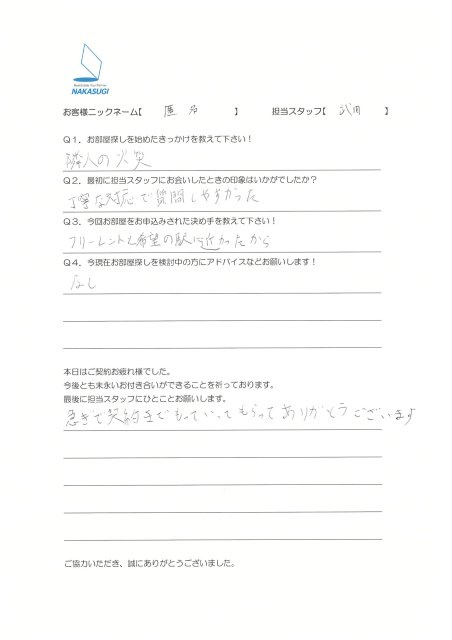 NAKASUGI
お客様ニックネーム【 匿名 】 担当スタッフ【 武田 】
Q1．お部屋探しを始めたきっかけを教えて下さい！
隣人の火災
Q2．最初に担当スタッフにお会いしたときの印象はいかがでしたか？
丁寧な対応で質問しやすかった
Q3．今回お部屋をお申込みされた決め手を教えて下さい！
フリーレントと希望の駅に近かったから
Q4．今現在お部屋探しを検討中の方にアドバイスなどお願いします！
なし
本日はご契約お疲れ様でした。
今後とも末永いお付き合いができることを祈っております。
最後に担当スタッフにひとことお願いします。
急ぎで契約までもっていってもらってありがとうございます
ご協力いただき、誠にありがとうございました。